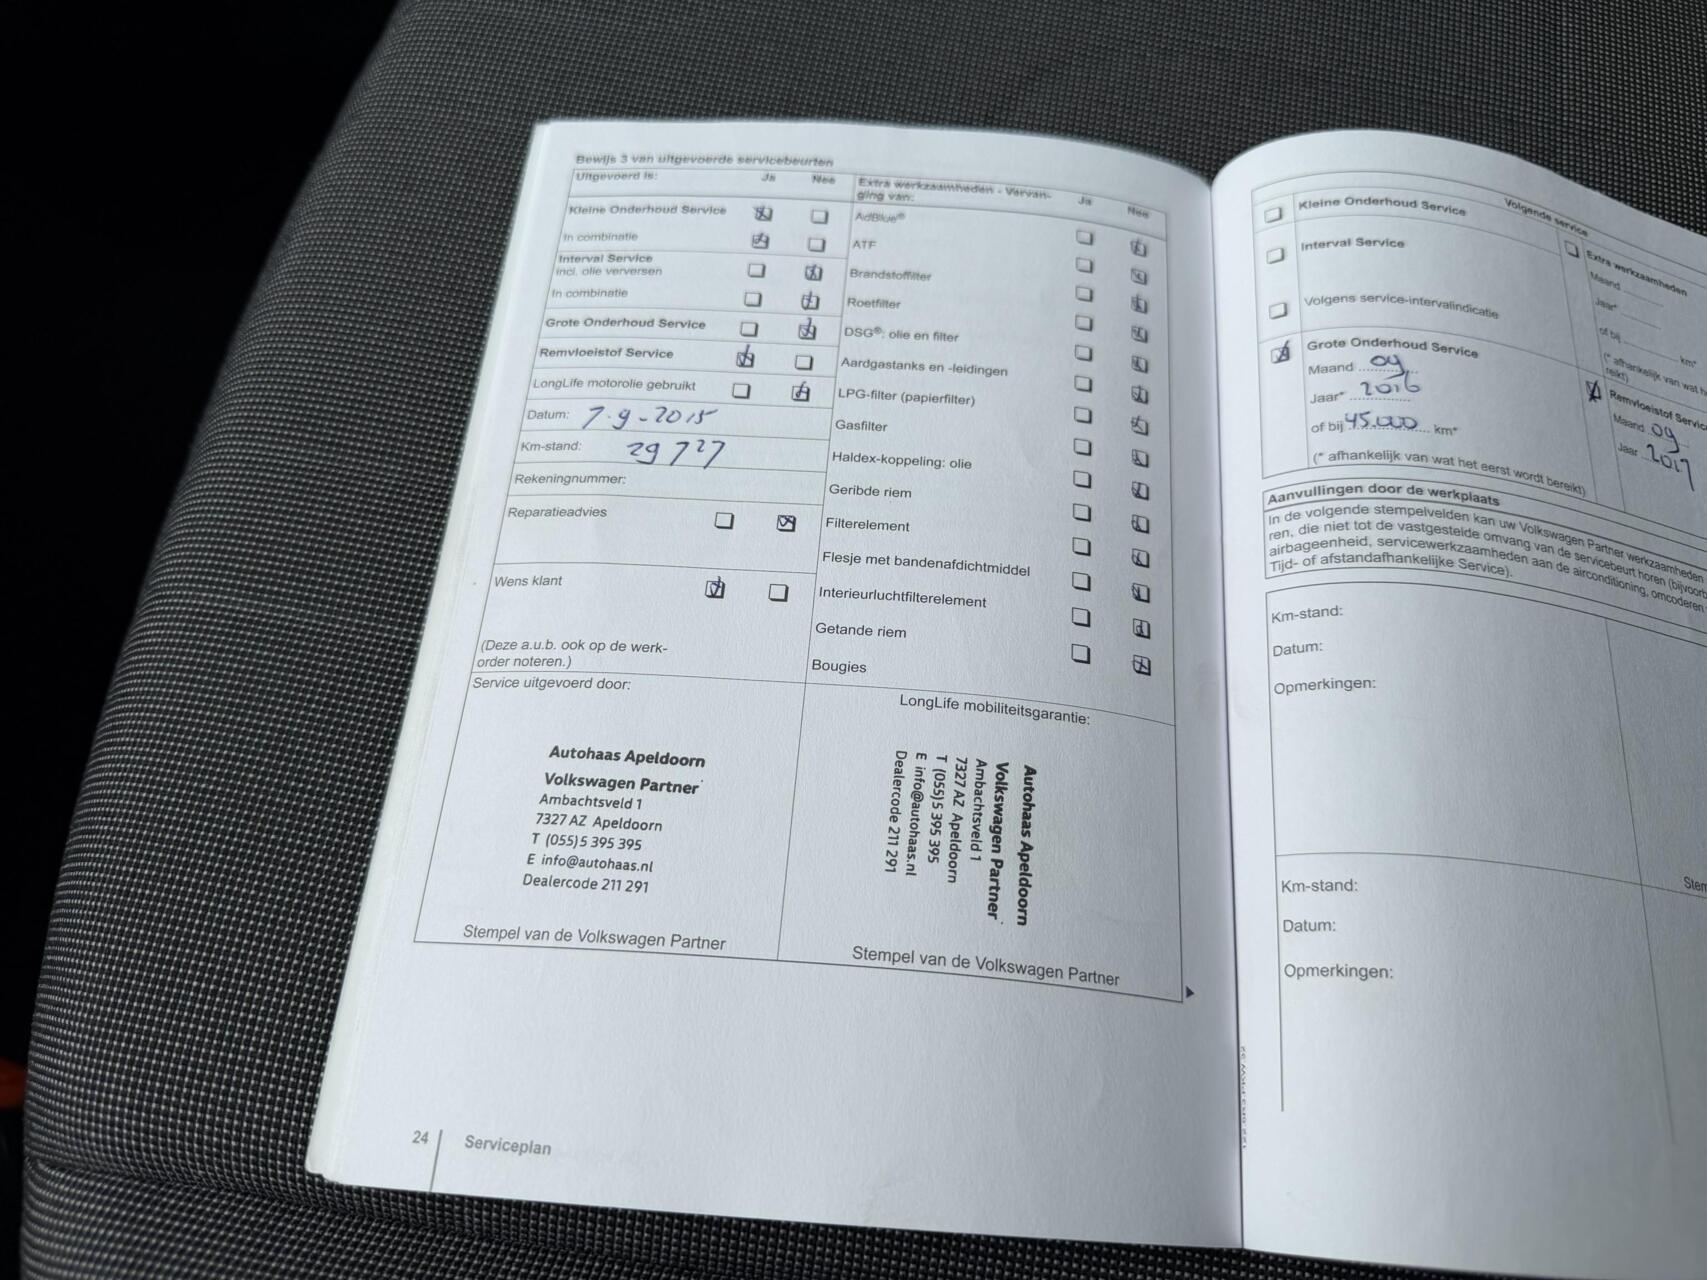 Bewijs 3 van uitgevoerde servicebeurten
Uitgevoerd is: Ja Nee
Kleine Onderhoud Service
In combinatie
Interval Service
incl. olie verversen
In combinatie
Grote Onderhoud Service
Remvloeistof Service
LongLife motorolie gebruikt
Datum: 7-9-2015
Km-stand: 29727
Rekeningnummer:
Reparatieadvies
Wens klant
(Deze a.u.b. ook op de werk-
order noteren.)
Extra werkzaamheden - Vervan-
ging van: Ja Nee
AdBlue®
ATF
Brandstoffilter
Roetfilter
DSG®: olie en filter
Aardgastanks en -leidingen
LPG-filter (papierfilter)
Gasfilter
Haldex-koppeling: olie
Geribde riem
Filterelement
Flesje met bandenafdichtmiddel
Interieurluchtfilterelement
Getande riem
Bougies
Service uitgevoerd door:
Autohaas Apeldoorn
Volkswagen Partner
Ambachtsveld 1
7327 AZ Apeldoorn
T (055) 5 395 395
E info@autohaas.nl
Dealercode 211 291
Stempel van de Volkswagen Partner
LongLife mobiliteitsgarantie:
Autohaas Apeldoorn
Volkswagen Partner
Ambachtsveld 1
7327 AZ Apeldoorn
T (055) 5 395 395
E info@autohaas.nl
Dealercode 211 291
Stempel van de Volkswagen Partner
24 Serviceplan
Volgende service
Kleine Onderhoud Service
Interval Service
Volgens service-intervalindicatie
Grote Onderhoud Service
Maand 09
Jaar* 2016
of bij 45.000 km*
(* afhankelijk van wat het eerst wordt bereikt)
Extra werkzaamheden
Maand
Jaar*
of bij km*
(* afhankelijk van wat
Remvloeistof
Maand 09
Jaar 2017
Aanvullingen door de werkplaats
In de volgende stempelvelden kan uw Volkswagen Partner werkzaamheden
ren, die niet tot de vastgestelde omvang van de servicebeurt horen
airbageenheid, servicewerkzaamheden aan de airconditioning, omcoderen
Tijd- of afstandafhankelijke Service).
Km-stand:
Datum:
Opmerkingen:
Km-stand:
Datum:
Opmerkingen: